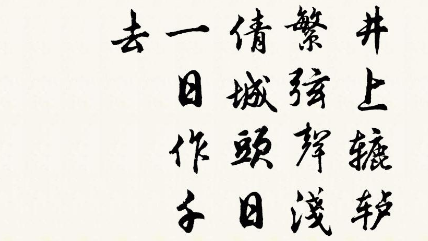 井上辘轳
繁弦聲淺
倩城頭日
一日作千
去